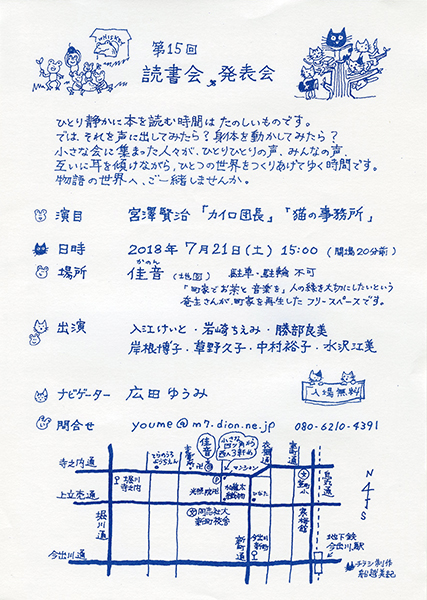 第15回
読書会 発表会
ひとり静かに本を読む時間は たのしいものです。
では、それを声に出してみたら？身体を動かしてみたら？
小さな会に集まった人々が、ひとりひとりの声、みんなの声、
互いに耳を傾けながら、ひとつの世界をつくりあげてゆく時間です。
物語の世界へ、ご一緒しませんか。
演目 宮澤賢治 「カイロ団長」「猫の事務所」
日時 2018年 7月21日(土) 15:00 (開場20分前)
かのん
場所 佳音 (地図) 駐車・駐輪 不可
「町家でお茶と音楽を」人の縁を大切にしたいという
庵主さんが、町家を再生した フリースペースです。
出演 入江けいと・岩崎ちえみ・勝部良美
岸根博子・草野久子・中村裕子・水沢江美
ナビゲーター 広田 ゆうみ
入場無料
問合せ youme@m7.dion.ne.jp 080-6210-4391
佳音
小さな
四ツ角から
西へ3軒め
マンション
寺之内通
上立売通
今出川通
堀川通
堀川
寺之内
新町通
衣棚通
室町通
烏丸通
室町小
同志社大
新町校舎
今出川
新町
地下鉄
今出川駅
N
S
チラシ制作